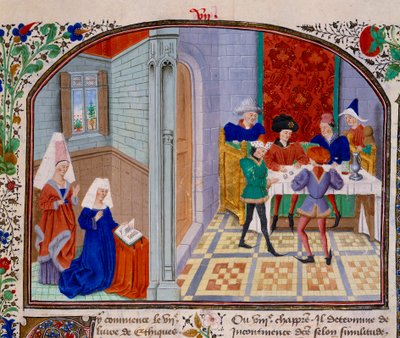 vij
y commence le vij
livre de Ethiques
Ou viij chappre. Il determine de
Incontinence des selon similitude.